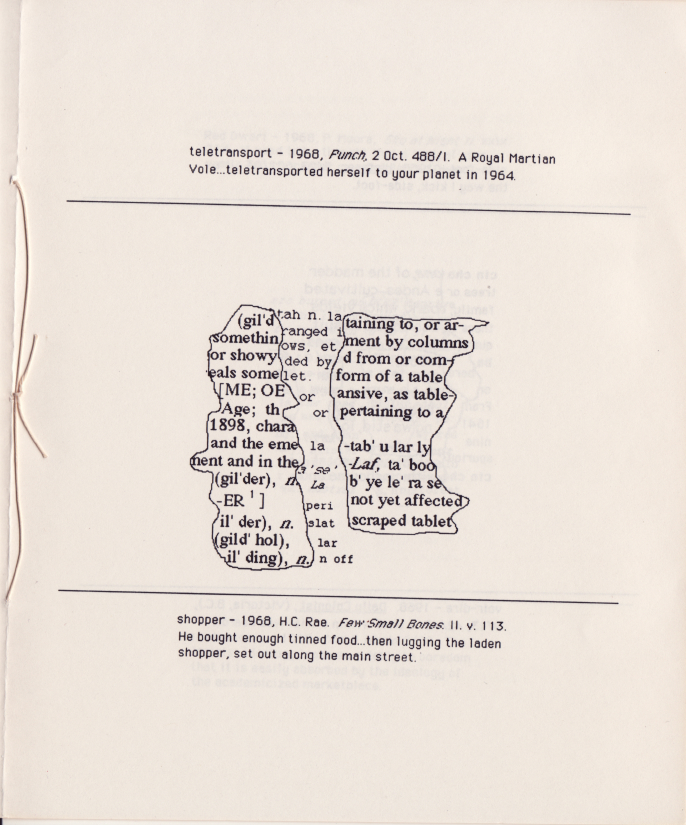 teletransport - 1968, Punch, 2 Oct. 488/1. A Royal Martian
Vole...teletransported herself to your planet in 1964.
(gil'd
somethin
or showy
eals some
[ME; OE
Age; th
1898, chara
and the eme
nent and in the
(gil'der), n.
-ER ¹ ]
il' der), n.
(gild' hol),
il' ding), n.
tah n. la
ranged i
ows, et
ded by
let.
or
or
la
a 'se'
La
peri
slat
lar
n off
taining to, or ar-
ment by columns
d from or com-
form of a table
ansive, as table-
pertaining to a
-tab' u lar ly
-Laf, ta' boo
b' ye le' ra se
not yet affected
scraped tablet
shopper - 1968, H.C. Rae. Few Small Bones. II. v. 113.
He bought enough tinned food...then lugging the laden
shopper, set out along the main street.